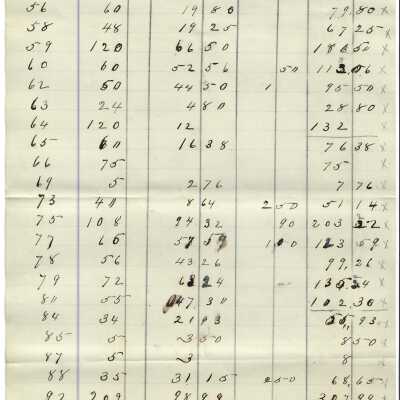 56 60 19 80 79.80 x
58 48 19 25 67 25 x
59 120 66 50 186 50 x
60 60 52 56 50 113 06 x
62 50 44 50 1 95 50 x
63 24 4 80 28 80 x
64 120 12 132 x
65 60 16 38 76 38 x
66 75 75 x
69 5 2 76 7 76 x
73 40 8 64 2 50 51 14 x
75 108 94 32 90 203 22 x
77 57 59 1 00 123 59 x
78 56 43 26 99.26 x
79 72 63 24 – 135 24 x
80 55 47 30 102.30 x
84 34 21 93 55,93 x
85 5 3 50 8 50 x
87 5 3 8 x
88 35 31 15 2 50 68,65 x
92 209 98 99 307 99 x